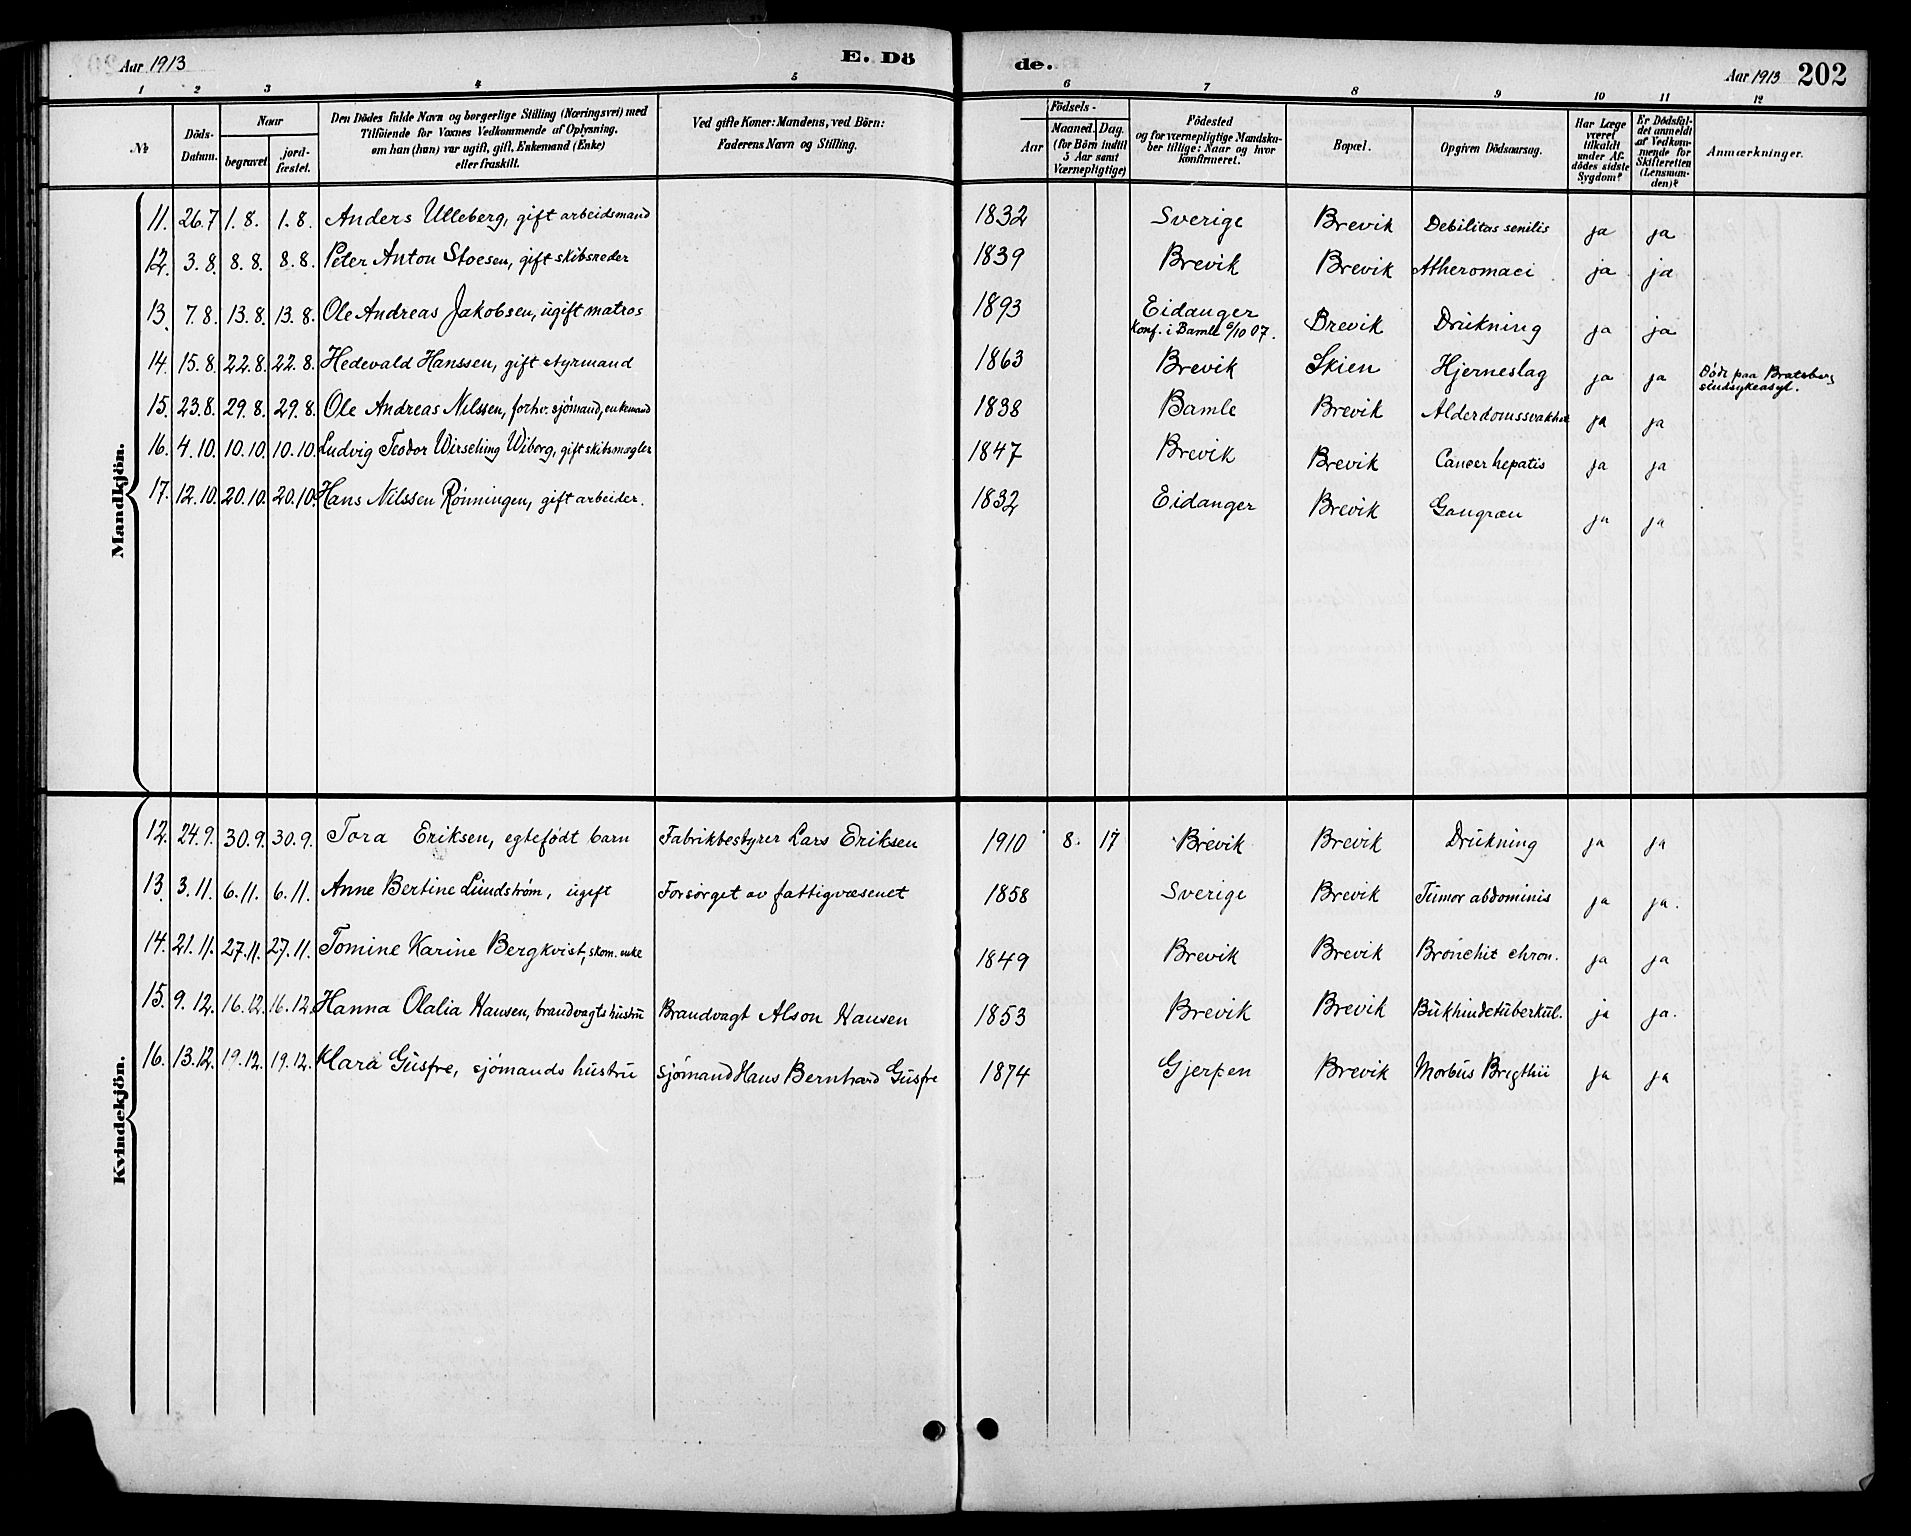 Aar 1913 E. Dö de. Aar 1913 202
1 2 3 4 5 6 7 8 9 10 11 12
№ Döds-Datum. Naar begravet jordfæstet. Den Dödes fulde Navn og borgerlige Stilling (Næringsvei) med Tilföiende for Voxnes Vedkommende af Oplysning, om han (hun) var ugift, gift, Enkemand (Enke) eller fraskilt. Ved gifte Koner: Mandens, ved Börn: Faderens Navn og Stilling. Födsels- Aar Maaned. Dag. (for Börn indtil 5 Aar samt Værnepligtige) Födested og for værnepligtige Mandskaber tillige: Naar og hvor konfirmeret. Bopæl. Opgiven Dödsaarsag. Har Læge været tilkaldt under Afdödes sidste Sygdom? Er Dödsfaldet anmeldt af Vedkommende for Skifteretten (Lensmanden)? Anmærkninger.
Mandkjön.
11. 26.7 1.8. 1.8. Anders Ulleberg, gift arbeidsmand 1832 Sverige Brevik Debilitas senilis ja ja
12. 3.8. 8.8. 8.8. Peter Anton Stoesen, gift skibsreder 1839 Brevik Brevik Atheromaci ja ja
13. 7.8. 13.8. 13.8. Ole Andreas Jakobsen, ugift matros 1893 Eidanger Brevik Drukning ja ja
Konf. i Bamle 6/10 07.
14. 15.8. 22.8. 22.8. Hedevald Hanssen, gift styrmand 1863 Brevik Skien Hjerneslag ja ja Döde paa Bratsberg
sindsykeasyl.
15. 23.8. 29.8. 29.8. Ole Andreas Nilssen, forhv. sjömand, enkemand 1838 Bamle Brevik Alderdomssvakhet ja ja
16. 4.10. 10.10. 10.10. Ludvig Teodor Wirsching Wiborg, gift skibsmægler 1847 Brevik Brevik Cancer hepatis ja ja
17. 12.10. 20.10. 20.10. Hans Nilssen Rønningen, gift arbeider. 1832 Eidanger Brevik Gangræn ja ja
Kvindekjön.
12. 24.9. 30.9. 30.9. Tora Eriksen, egtefødt barn Fabrikbestyrer Lars Eriksen 1910 8. 17 Brevik Brevik Drukning ja ja
13. 3.11. 6.11. 6.11. Anne Bertine Lundstrøm, ugift Forsørget av fattigvæsenet 1858 Sverige Brevik Tumor abdominis ja ja.
14. 21.11. 27.11. 27.11. Tomine Karine Bergkvist, skom. enke 1849 Brevik Brevik Bronchit chron. ja ja
15. 9.12. 16.12. 16.12. Hanna Olalia Hansen, brandvagts hustru Brandvagt Alson Hansen 1853 Brevik Brevik Bukhindetuberkul. ja ja.
16. 13.12. 19.12. 19.12. Klara Gusfre, sjømands hustru Sjømand Hans Bernhard Gusfre 1874 Gjerpen Brevik Morbus Brigthii ja ja